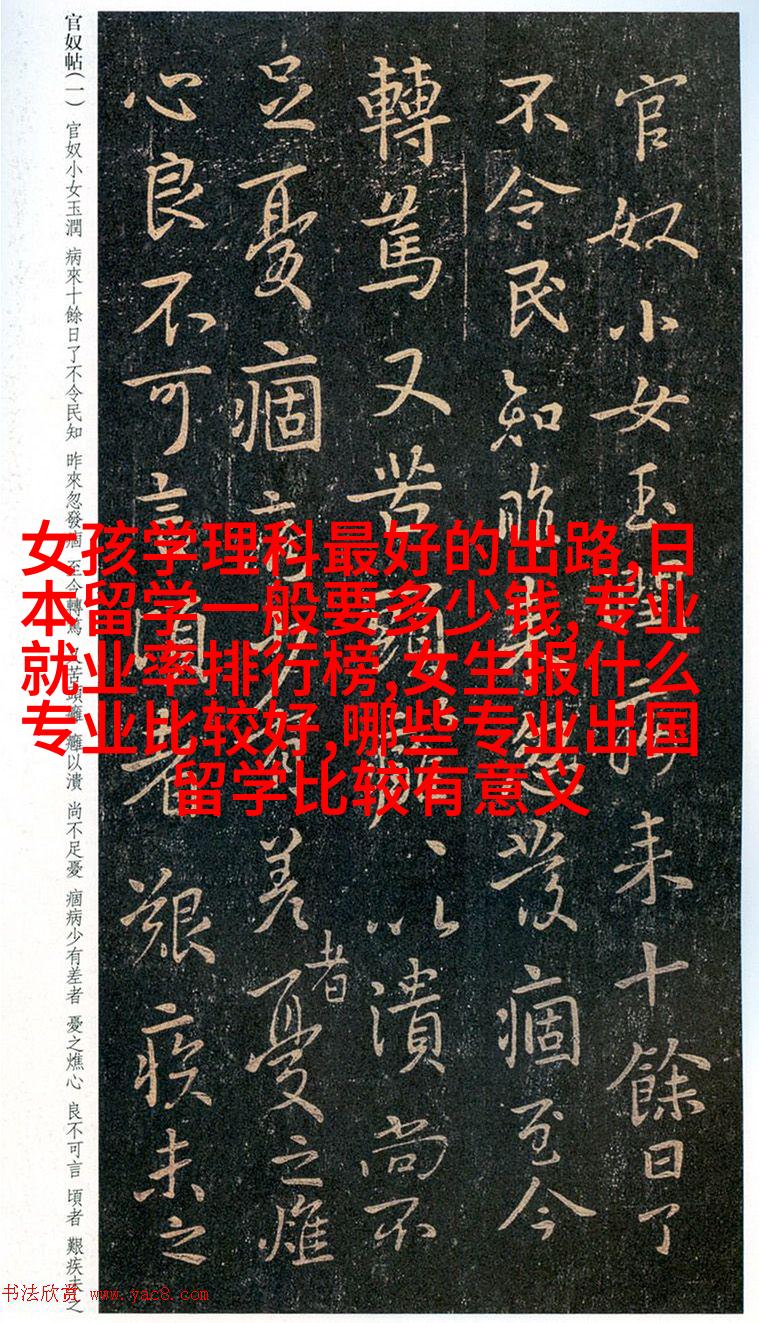 官奴小女玉潤病来十餘日了
不令民知昨来忽發痼至今
轉篤又苦頭癰〻以潰尚不
足憂痼病少有差者憂之燋
心良不可言頃者艱疾未之
官奴帖(一) 官奴小女玉潤 病來十餘日了不令民知 昨來忽發痼 至今轉篤 又苦頭癰 癰以潰 尚不足憂 痼病少有差者 憂之燋心 良不可言 頃者 艱疾未之
女孩学理科最好的出路,日
本留学一般要多少钱,专业
就业率排行榜,女生报什么
专业比较好,哪些专业出国
留学比较有意义
书法欣赏 www.yac8.com